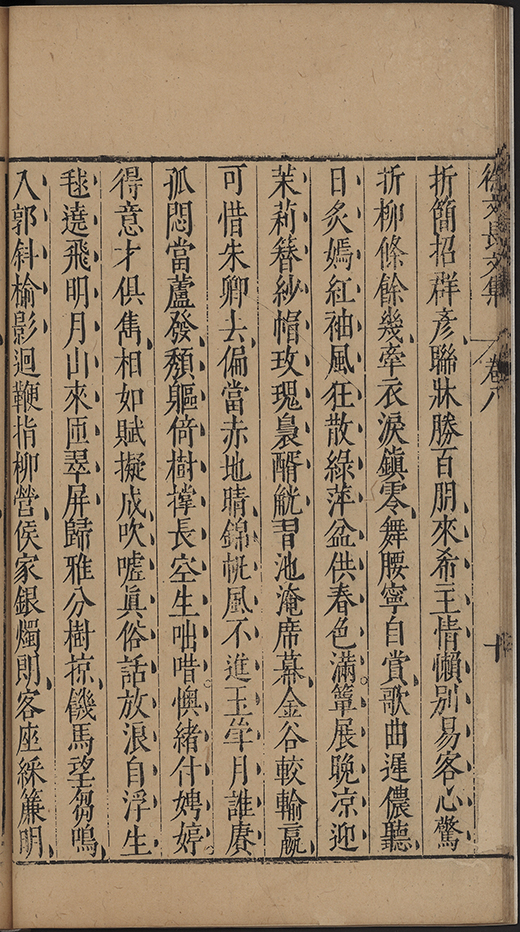 徐文長文集 卷八 十
折簡招群彥聯牀勝百朋來希王情懶別易客心驚
折柳條餘幾牽衣淚鎮零舞腰寧自賞歌曲遲儂聽
日炙嫣紅袖風狂散綠萍盆供春色滿簟展晚凉迎
茉莉簪紗帽玫瑰裊醑觥習池淹席幕金谷較輸嬴
可惜朱卿去偏當赤地晴錦帆風不進玉笋月誰賡
孤悶當蘆發頹軀倚樹撐長空生咄唶懊緒什娉婷
得意才俱雋相如賦擬成吹噓眞俗話放浪自浮生
毬遶飛明月山來匝翠屏歸鴉分樹掠饑馬望芻鳴
入郭斜榆影迴鞭指柳營侯家銀燭朗客座綵簾明